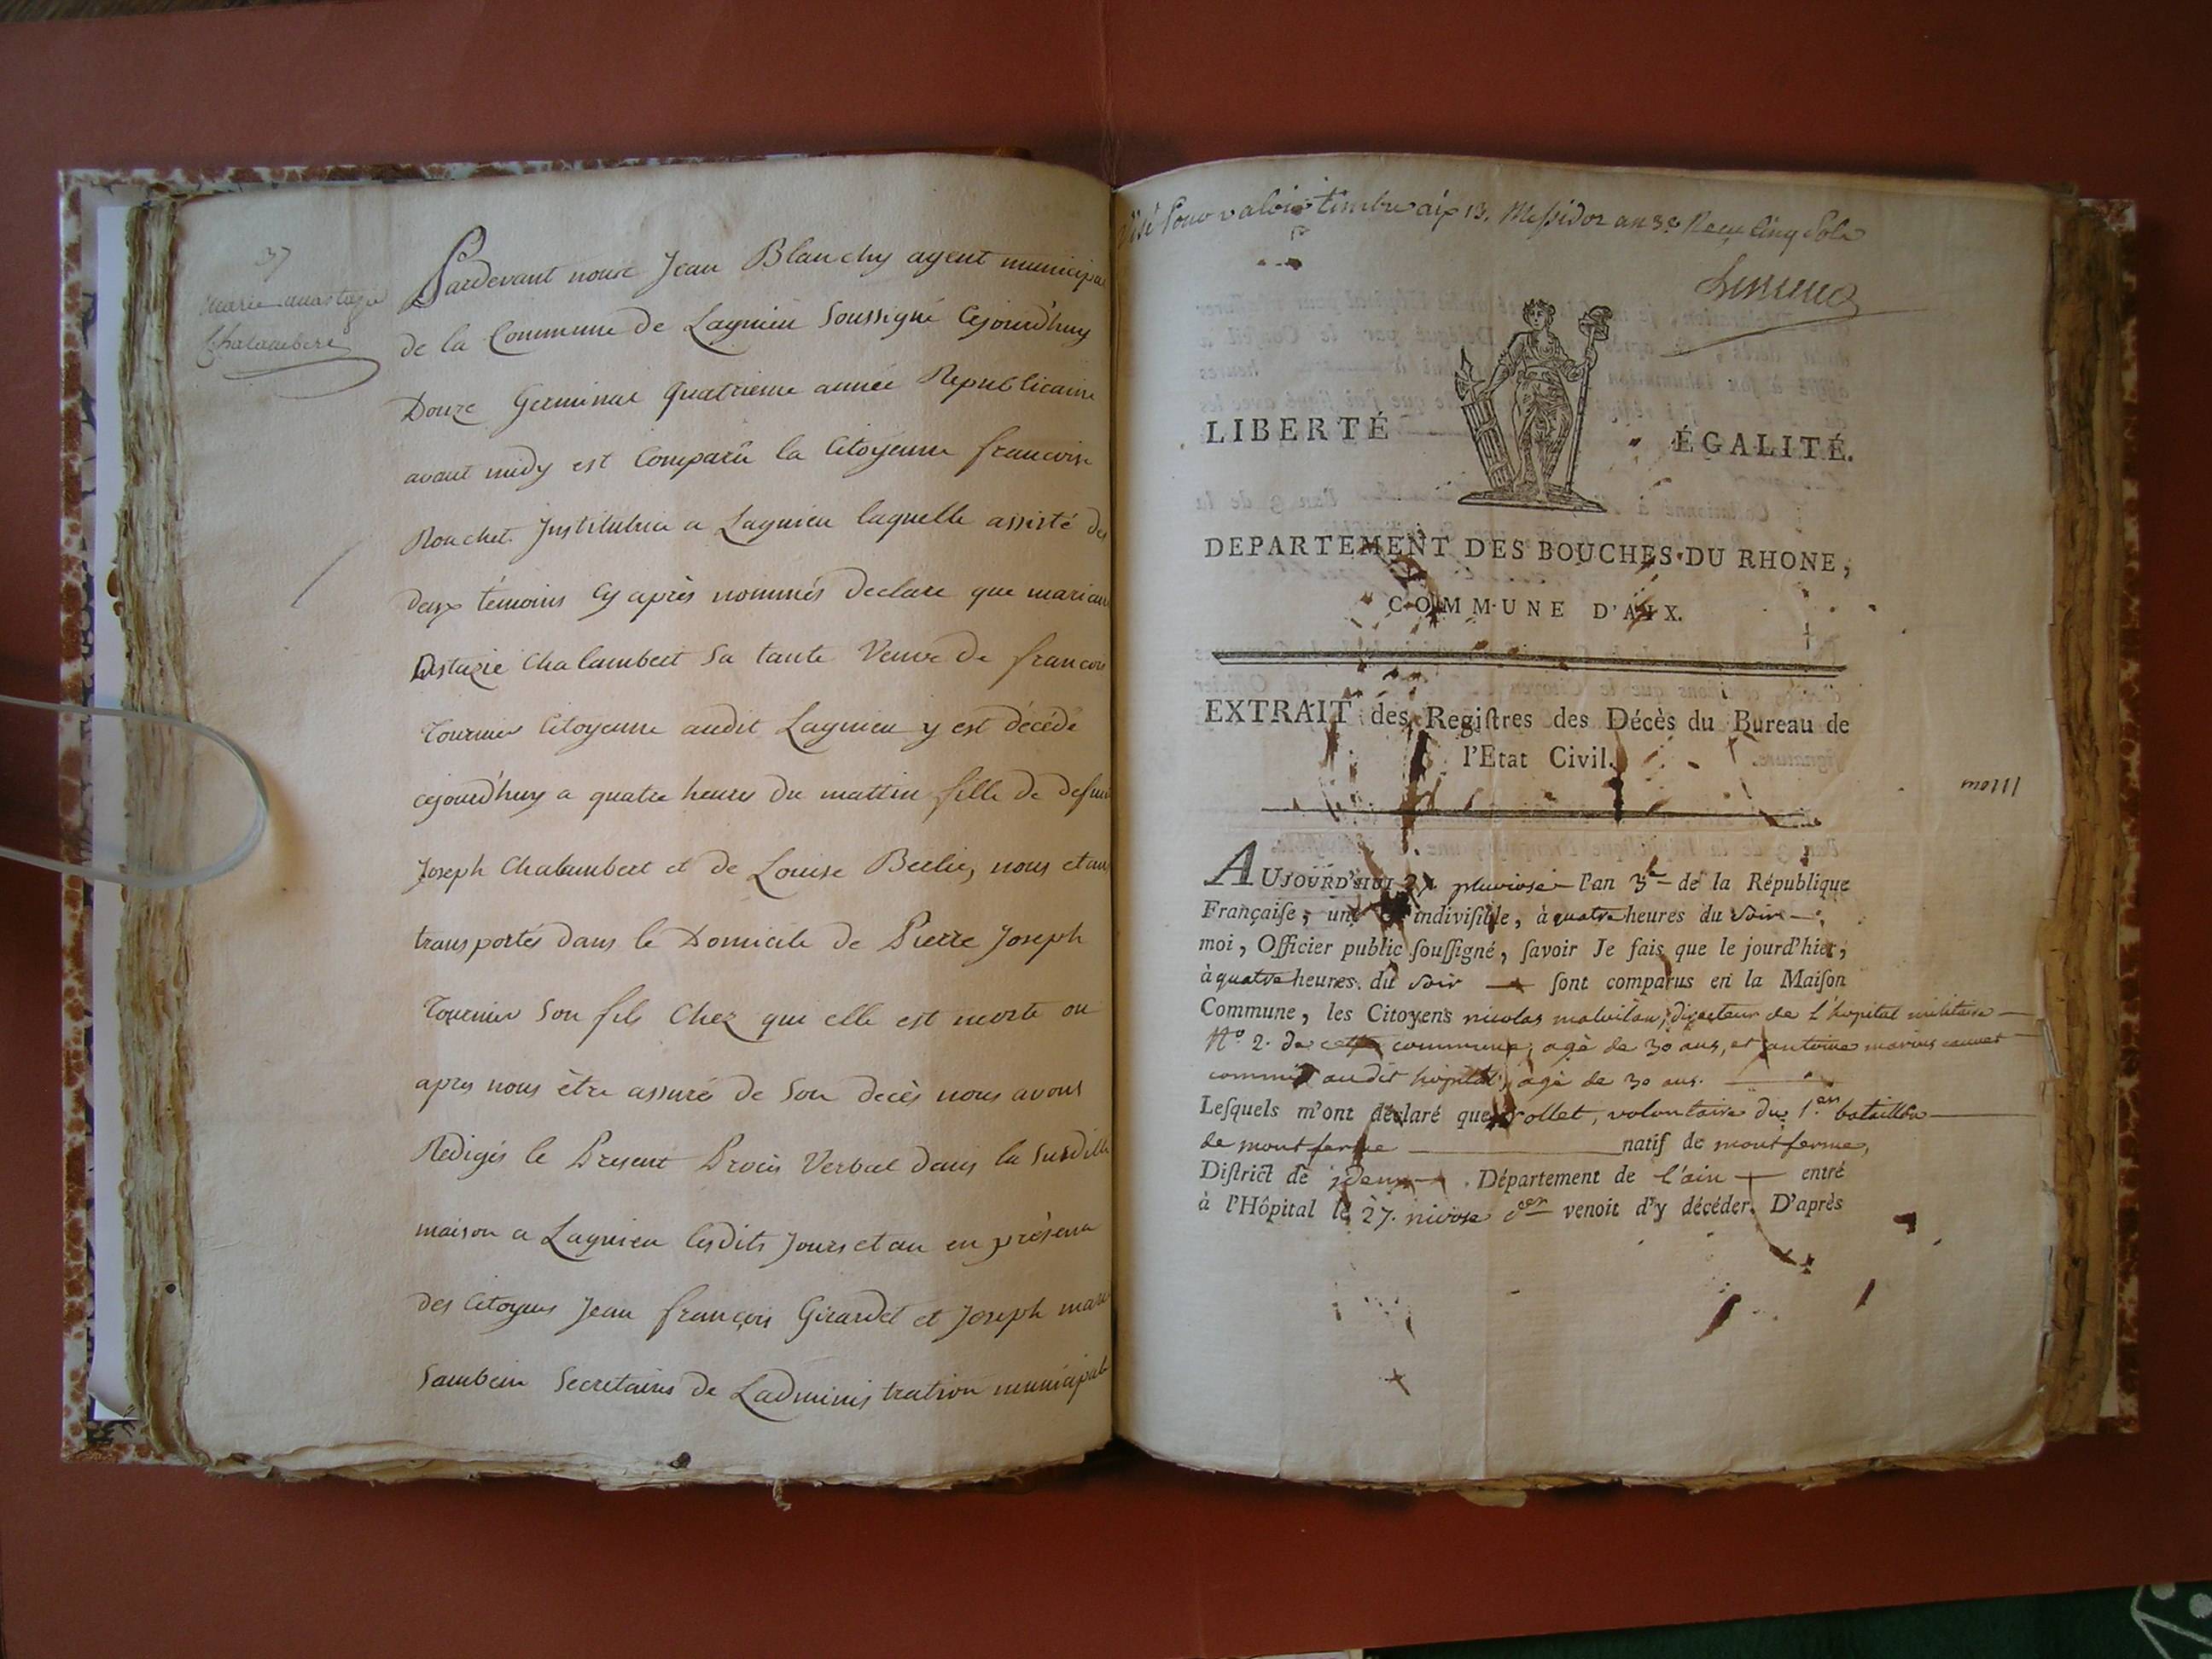 37
marie anastazie
Chalambert
Pardevant nous Jean Blanchy agent municipal
de la Commune de Lagnieu Soussigné Cejourd'huy
Douze Germinal quatrieme année Republicaine
avant midy est Comparüe la Citoyenne francoise
Rouchet Institutrice a Lagnieu laquelle assisté des
deux témoins Cy après nommés declare que marie an
astazie Chalambert Sa tante Veuve de francois
Tournier Citoyenne audit Lagnieu y est décédé
cejourd'huy a quatre heures du mattin fille de defunt
Joseph Chalambert et de Louise Berlie, nous etant
transportés dans le Domicile de Pierre Joseph
Tournier Son fils Chez qui elle est morte ou
apres nous être assuré de Son decès nous avons
Redigés le Present Procès Verbal dans la Susditte
maison a Lagnieu lesdits Jours et an en présence
des Citoyens Jean françois Girardet et Joseph marie
Sambein Secretaires de Ladministration municipale
Visé Pour valoir timbre aix 13. Messidor an 3e Reçu Cinq Sols
LIBERTÉ ÉGALITÉ.
DEPARTEMENT DES BOUCHES-DU RHONE,
COMMUNE D'AIX.
EXTRAIT des Regiſtres des Décès du Bureau de
l'Etat Civil.
AUJOURD'HUI pluviose l'an 3e de la République
Françaiſe, une et indiviſible, à quatre heures du soir
moi, Officier public ſouſſigné, ſavoir Je fais que le jourd'hier,
à quatre heures du soir ſont comparus en la Maiſon
Commune, les Citoyens nicolas malvilan, directeur de l'hopital militaire
N.o 2. de cette commune, agé de 30 ans, et antoine marius cauvet
commis audit hopital, agé de 30 ans.
Leſquels m'ont déclaré que rollet, volontaire du 1.er bataillon
de montferme natif de montferme,
Diſtrict de idem Département de l'ain entré
à l'Hôpital le 27. nivose der venoit d'y décéder. D'après